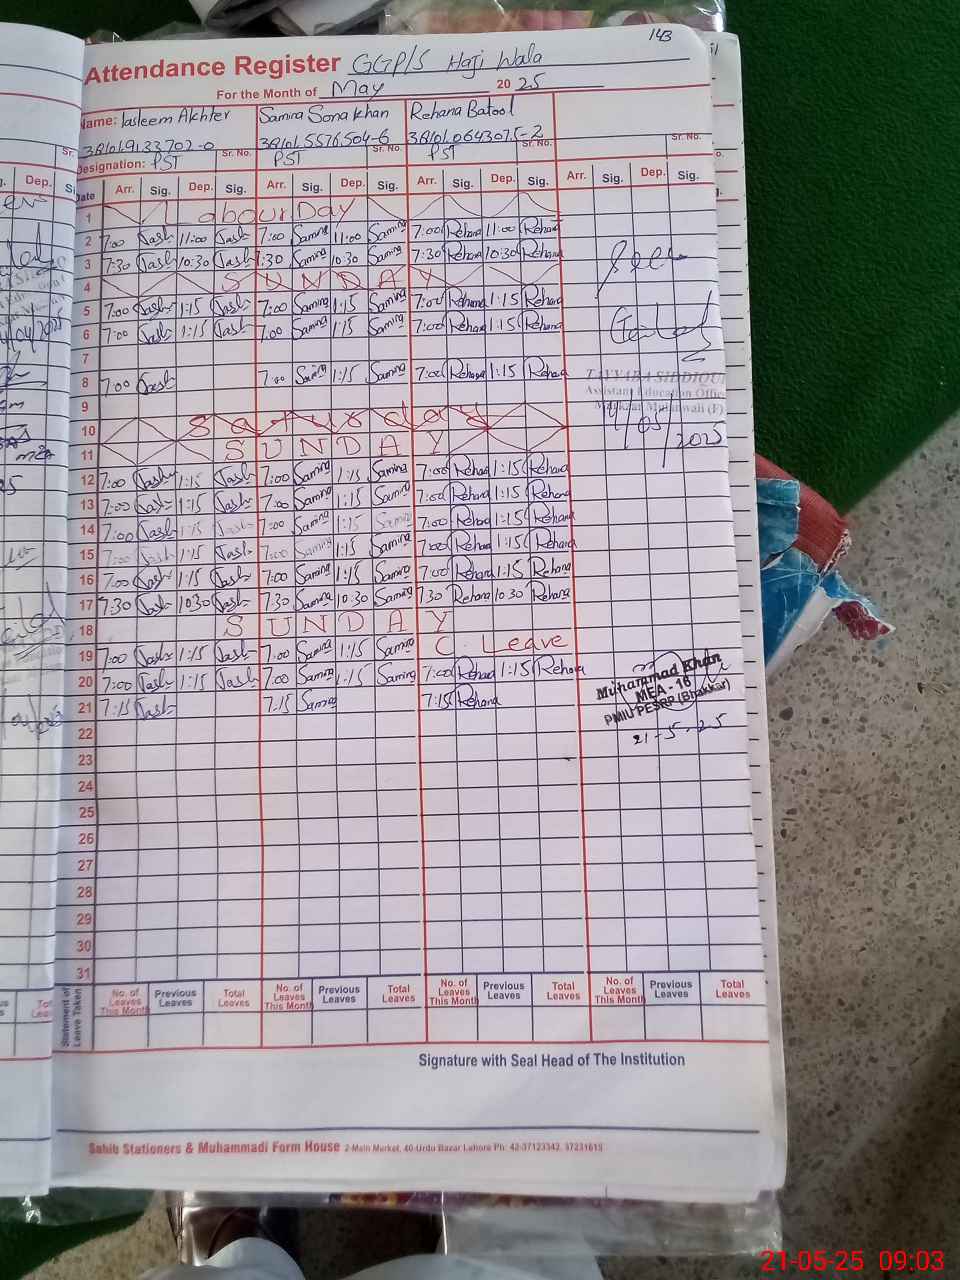 143
Attendance Register GGP/S Haji Wala
For the Month of May 2025
Name: Tasleem Akhter Samina Sona khan Rehana Batool
38101.9133702-0 38101.5576504-6 38101.0643075-2
Designation: PST Sr. No. PST Sr. No. PST Sr. No. Sr. No.
Date Arr. Sig. Dep. Sig. Arr. Sig. Dep. Sig. Arr. Sig. Dep. Sig. Arr. Sig. Dep. Sig.
1 Labour Day
2 7:00 Tash 11:00 Tash 7:00 Samina 11:00 Samina 7:00 Rehana 11:00 Rehana
3 7:30 Tash 10:30 Tash 7:30 Samina 10:30 Samina 7:30 Rehana 10:30 Rehana
4 SUNDAY
5 7:00 Tash 1:15 Tash 7:00 Samina 1:15 Samina 7:00 Rehana 1:15 Rehana
6 7:00 Tash 1:15 Tash 7:00 Samina 1:15 Samina 7:00 Rehana 1:15 Rehana
7
8 7:00 Tash 7:00 Samina 1:15 Samina 7:00 Rehana 1:15 Rehana
9
10 Saturday
11 SUNDAY
12 7:00 Tash 1:15 Tash 7:00 Samina 1:15 Samina 7:00 Rehana 1:15 Rehana
13 7:00 Tash 1:15 Tash 7:00 Samina 1:15 Samina 7:00 Rehana 1:15 Rehana
14 7:00 Tash 1:15 Tash 7:00 Samina 1:15 Samina 7:00 Rehana 1:15 Rehana
15 7:00 Tash 1:15 Tash 7:00 Samina 1:15 Samina 7:00 Rehana 1:15 Rehana
16 7:00 Tash 1:15 Tash 7:00 Samina 1:15 Samina 7:00 Rehana 1:15 Rehana
17 7:30 Tash 10:30 Tash 7:30 Samina 10:30 Samina 7:30 Rehana 10:30 Rehana
18 SUNDAY
19 7:00 Tash 1:15 Tash 7:00 Samina 1:15 Samina C. Leave
20 7:00 Tash 1:15 Tash 7:00 Samina 1:15 Samina 7:00 Rehana 1:15 Rehana
21 7:15 Tash 7:15 Samina 7:15 Rehana
22
23
24
25
26
27
28
29
30
31
Seen
TAYYABA SIDDIQUI
Assistant Education Offic
/05/2025
Muhammad Khan
MEA - 16
PMIU PESRP (Bhakkar)
21-5-25
Statement of Leave Taken
No. of Leaves This Month Previous Leaves Total Leaves No. of Leaves This Month Previous Leaves Total Leaves No. of Leaves This Month Previous Leaves Total Leaves No. of Leaves This Month Previous Leaves Total Leaves
Signature with Seal Head of The Institution
Sahib Stationers & Muhammadi Form House 2-Main Market, 40-Urdu Bazar Lahore Ph: 42-37123342, 37231615
21-05-25 09:03